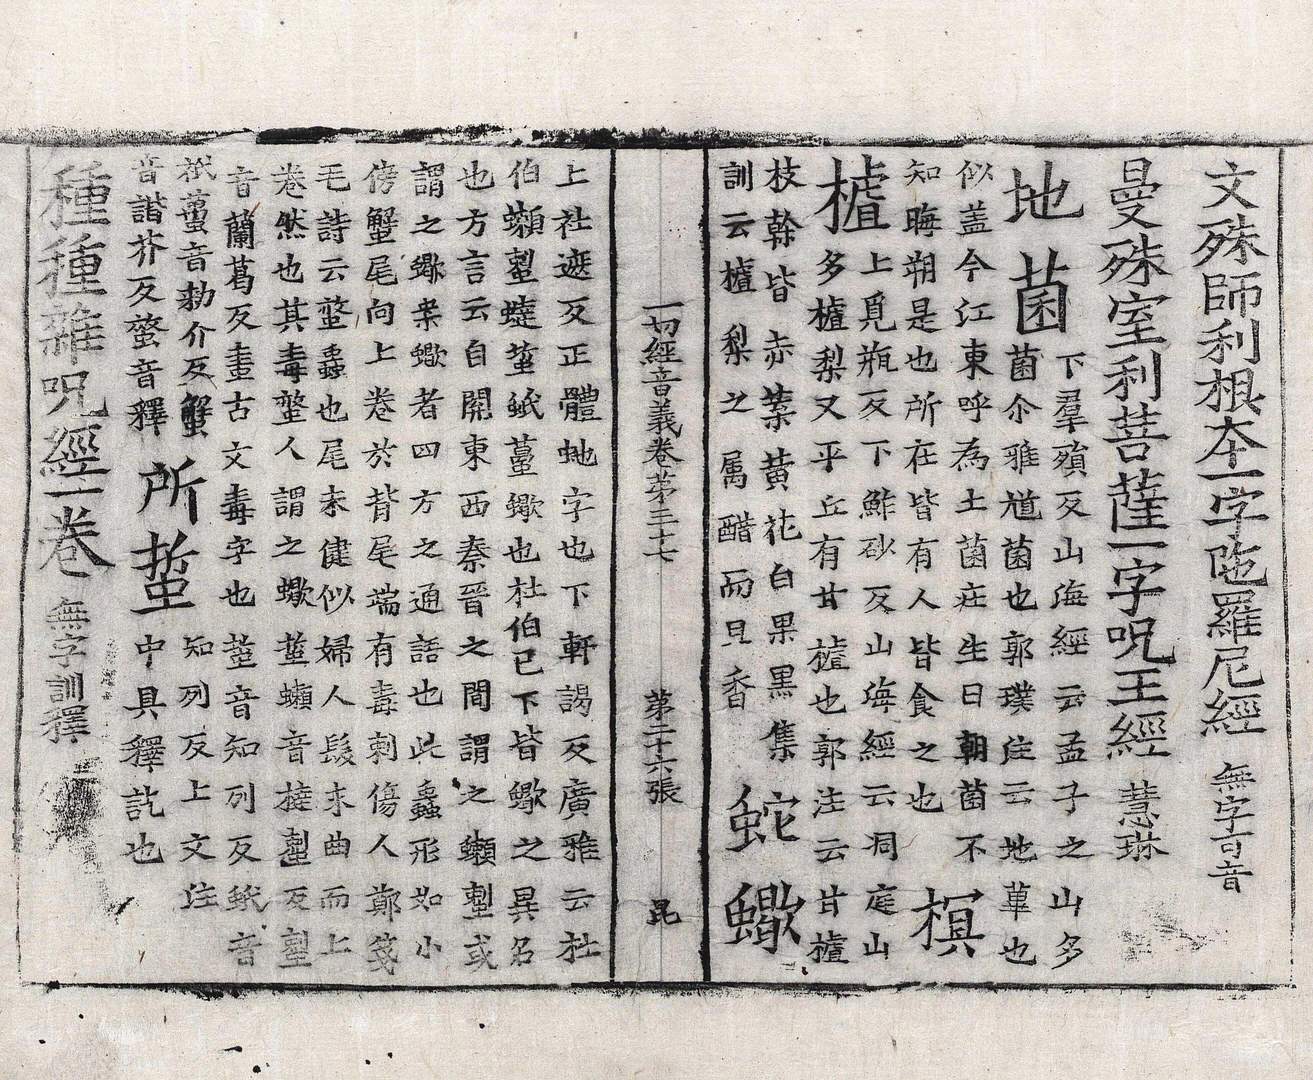 文殊師利根本一字陁羅尼經 無字可音
曼殊室利菩薩一字呪王經 慧琳
地菌 下羣殞反山海經云孟子之山多
菌尒雅馗菌也郭璞注云地蕈也
似盖今江東呼為土菌莊生曰朝菌不
知晦朔是也所在皆有人皆食之也 樝
樝 上覓瓶反下鮓砂反山海經云洞庭山
多樝梨又平丘有甘樝也郭注云甘樝
枝榦皆赤葉黄花白果黒集
訓云樝梨之属醋而且香 蛇蠍
一切經音義卷苐三十七 苐二十六張 昆
上社遮反正體虵字也下軒謁反廣雅云杜
伯𧓽𧍠䗶蠆蚔蠆蠍也杜伯已下皆蠍之異名
也方言云自開東西秦晉之間謂之𧓽𧍠或
謂之蠍案蠍者四方之通語也此蟲形如小
傍蟹尾向上卷於背尾端有毒刺傷人鄭箋
毛詩云蠆蟲也尾末揵似婦人髮末曲而上
卷然也其毒螫人謂之蠍蠆𧓽音撻𧍠反𧍠
音蘭葛反畫古文毒字也蜇音知列反蚔音
祇蠆音勑介反蟹
音諧芥反螫音釋 所蜇 知列反上文注
中具釋訖也
種種雜呪經一卷 無字訓釋